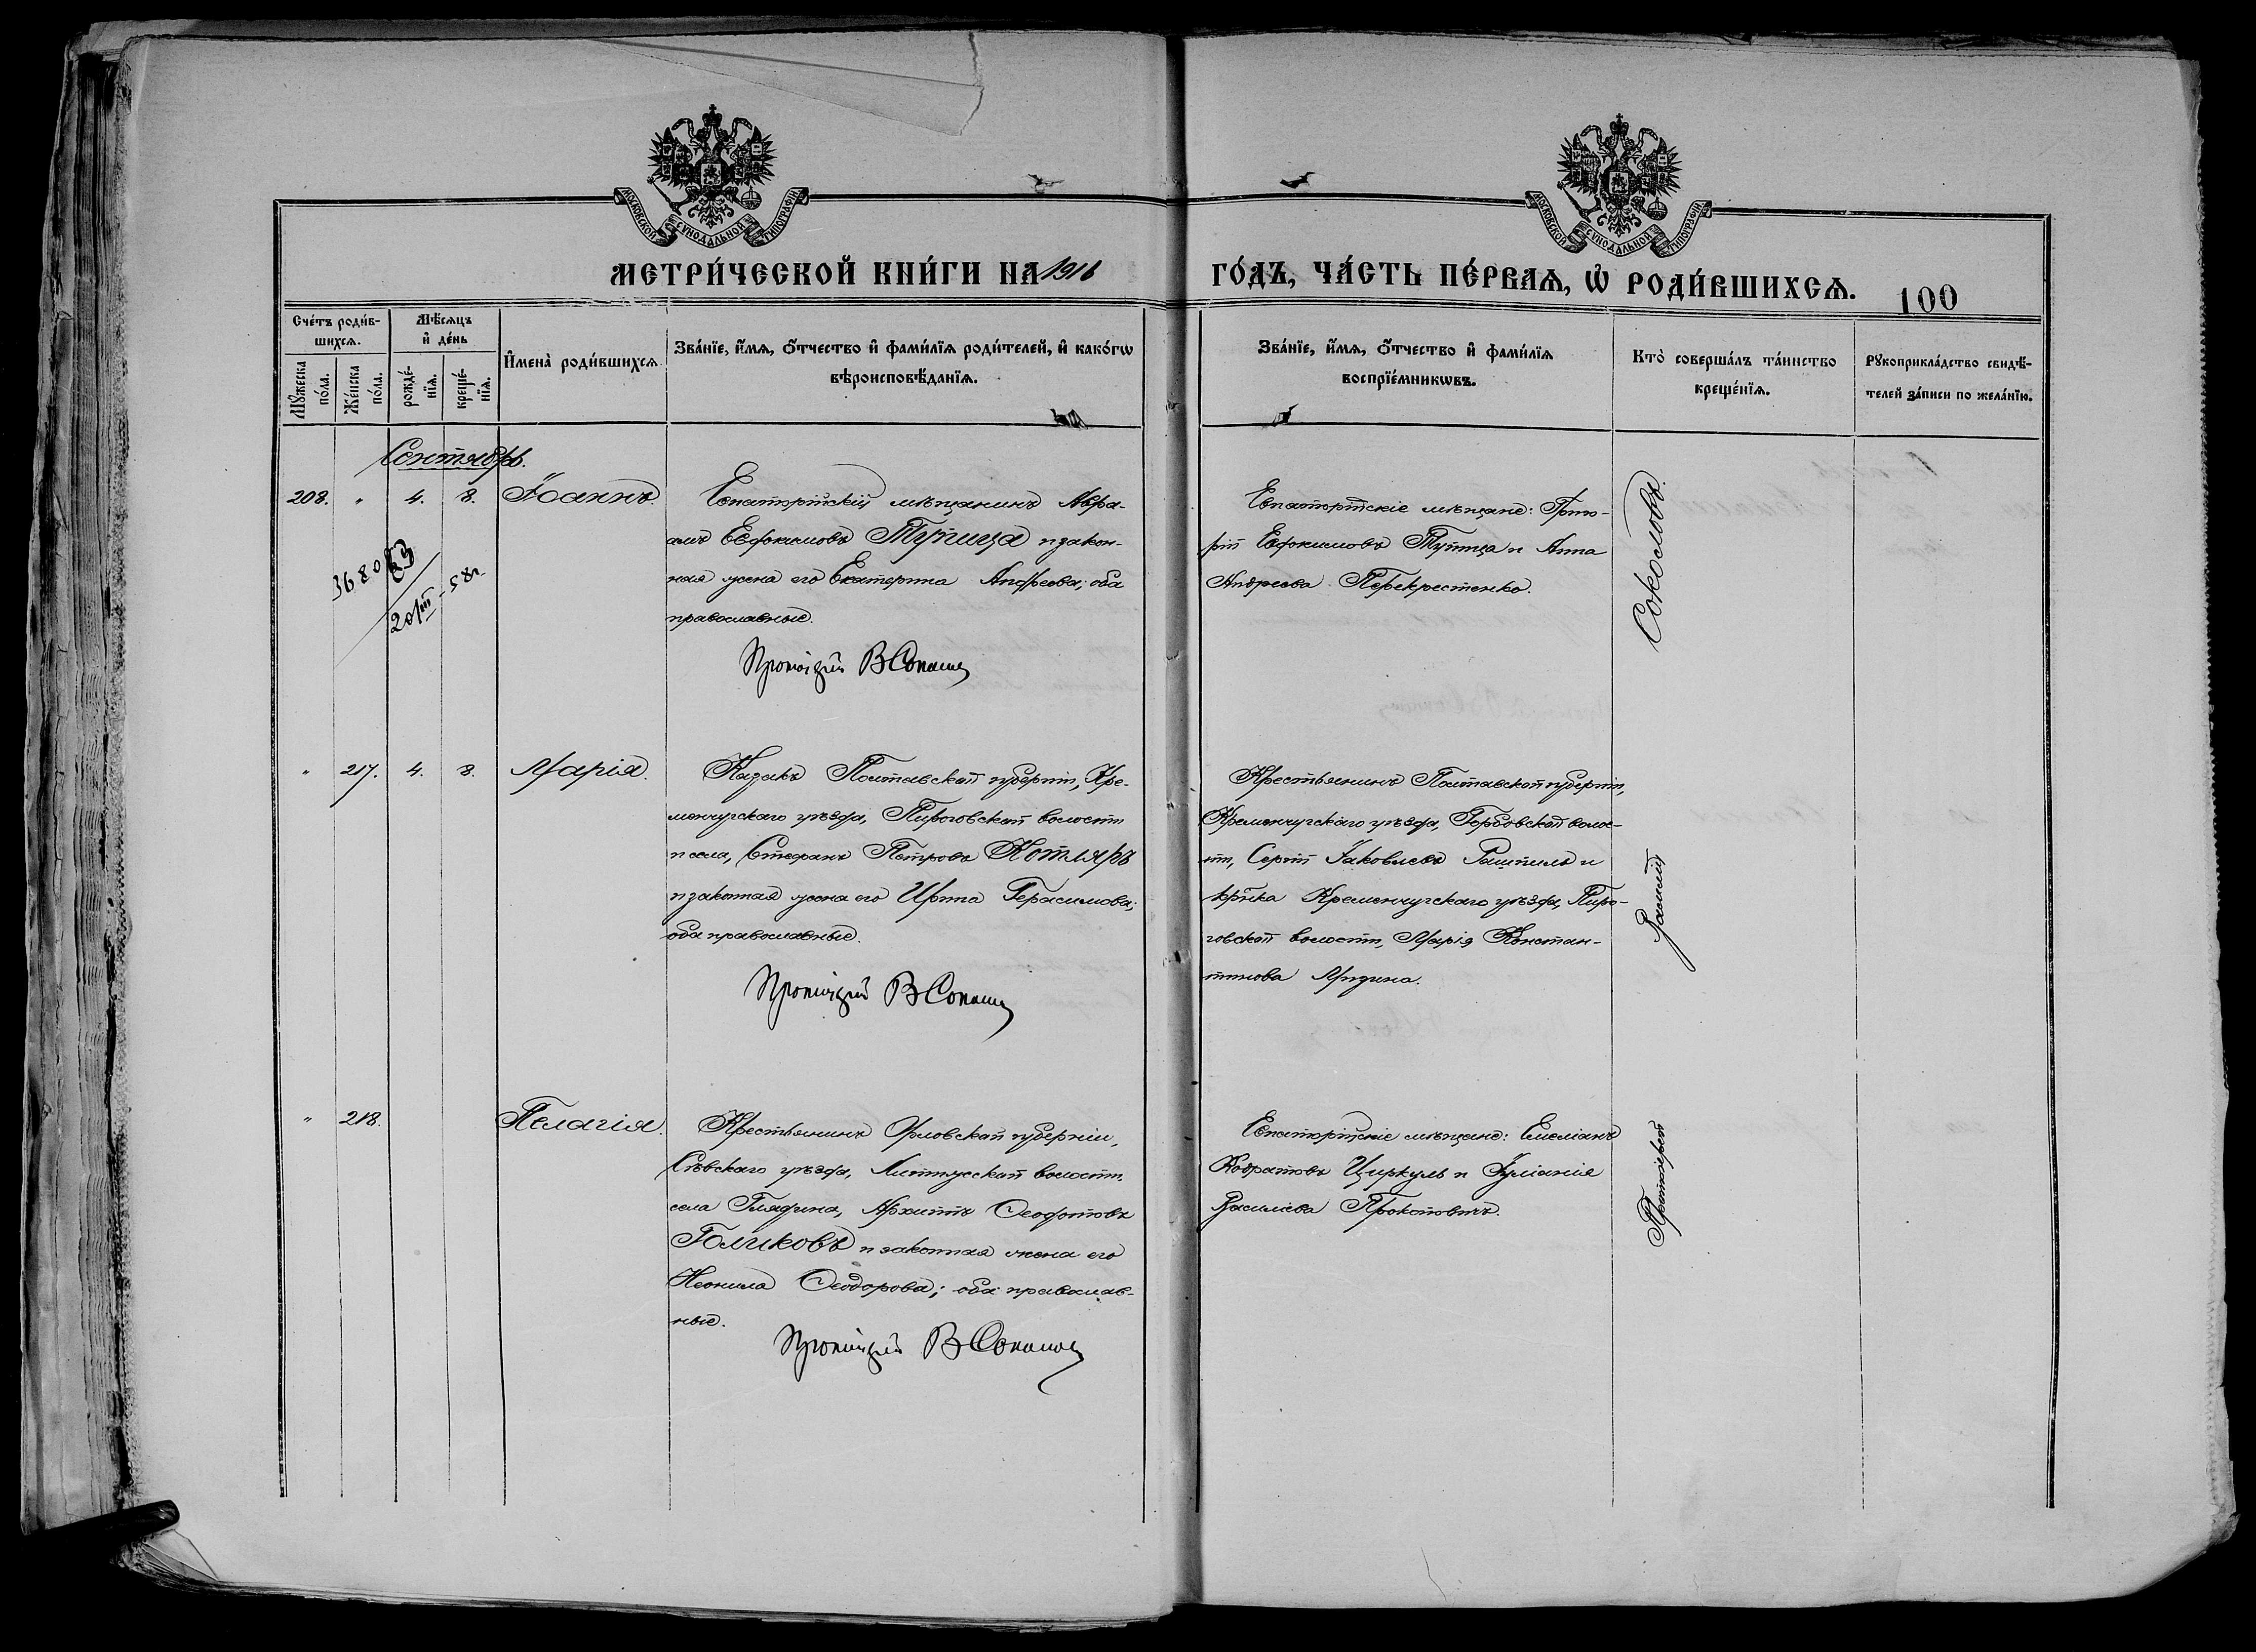 МОСКОВСКОЙ СѴНОДАЛЬНОЙ ТИПОГРАФІИ
МОСКОВСКОЙ СѴНОДАЛЬНОЙ ТИПОГРАФІИ
МЕТРИ́ЧЕСКОЙ КНИ́ГИ НА 1916
ГО́ДЪ, ЧА́СТЬ ПЕ́РВАѦ, Ѡ РОДИ́ВШИХСѦ.
100
Сче́тъ роди́в-
шихсѧ.
Мѣ́сѧцъ
и҆ де́нь
Мꙋ́жеска
по́ла.
Же́нска
по́ла.
рожде́-
нїѧ.
креще́-
нїѧ.
И҆мена̀ роди́вшихсѧ
Зва́нїе, и҆́мѧ, ѻ҆́тчество и҆ фами́лїѧ роди́телей, и҆ како́гѡ
вѣроисповѣ́данїѧ.
Зва́нїе, и҆́мѧ, ѻ҆́тчество и҆ фами́лїѧ
воспрїе́мникѡвъ.
Кто̀ соверша́лъ та́инство
креще́нїѧ.
Рꙋкоприкла́дство свидѣ́-
телей за́писи по жела́нїю.
Сентябрь.
208. " 4. 8. Іоаннъ.
Евпаторійскій мѣщанинъ Авра-
амъ Евфимовъ Тупица и закон-
ная жена его Екатерина Андреева; оба
православные.
Протоіерей В Сокол
Евпаторійскіе мѣщане: Григо-
рій Евфимовъ Тупица и Анна
Андреева Перекрестенко.
Соколовъ.
368063
20/III-58г.
" 217. 4. 8. Марія.
Казакъ Полтавской губерніи, Кре-
менчугскаго уѣзда, Пироговской волости
и села, Стефанъ Петровъ Котляръ
и законная жена его Ирина Герасимова;
оба православные.
Протоіерей В Сокол
Крестьянинъ Полтавской губерніи,
Кременчугскаго уѣзда, Горбовской волос-
ти, Сергій Іаковлевъ Рашпиль и
Кременчугскаго уѣзда, Пиро-
говской волости, Марія Констан-
тинова
" 218. Пелагія.
Крестьянинъ Орловской губерніи,
Сѣвскаго уѣзда, волости,
села Глядина, Архипъ Ѳеодотовъ
Голиковъ и законная жена его
Неонила Ѳеодорова; оба православ-
ные.
Протоіерей В Сокол
Евпаторійскіе мѣщане: Емеліанъ
Кодратовъ Циркуль и Іуліанія
Васильева Прокоповичъ.
Протоіерей